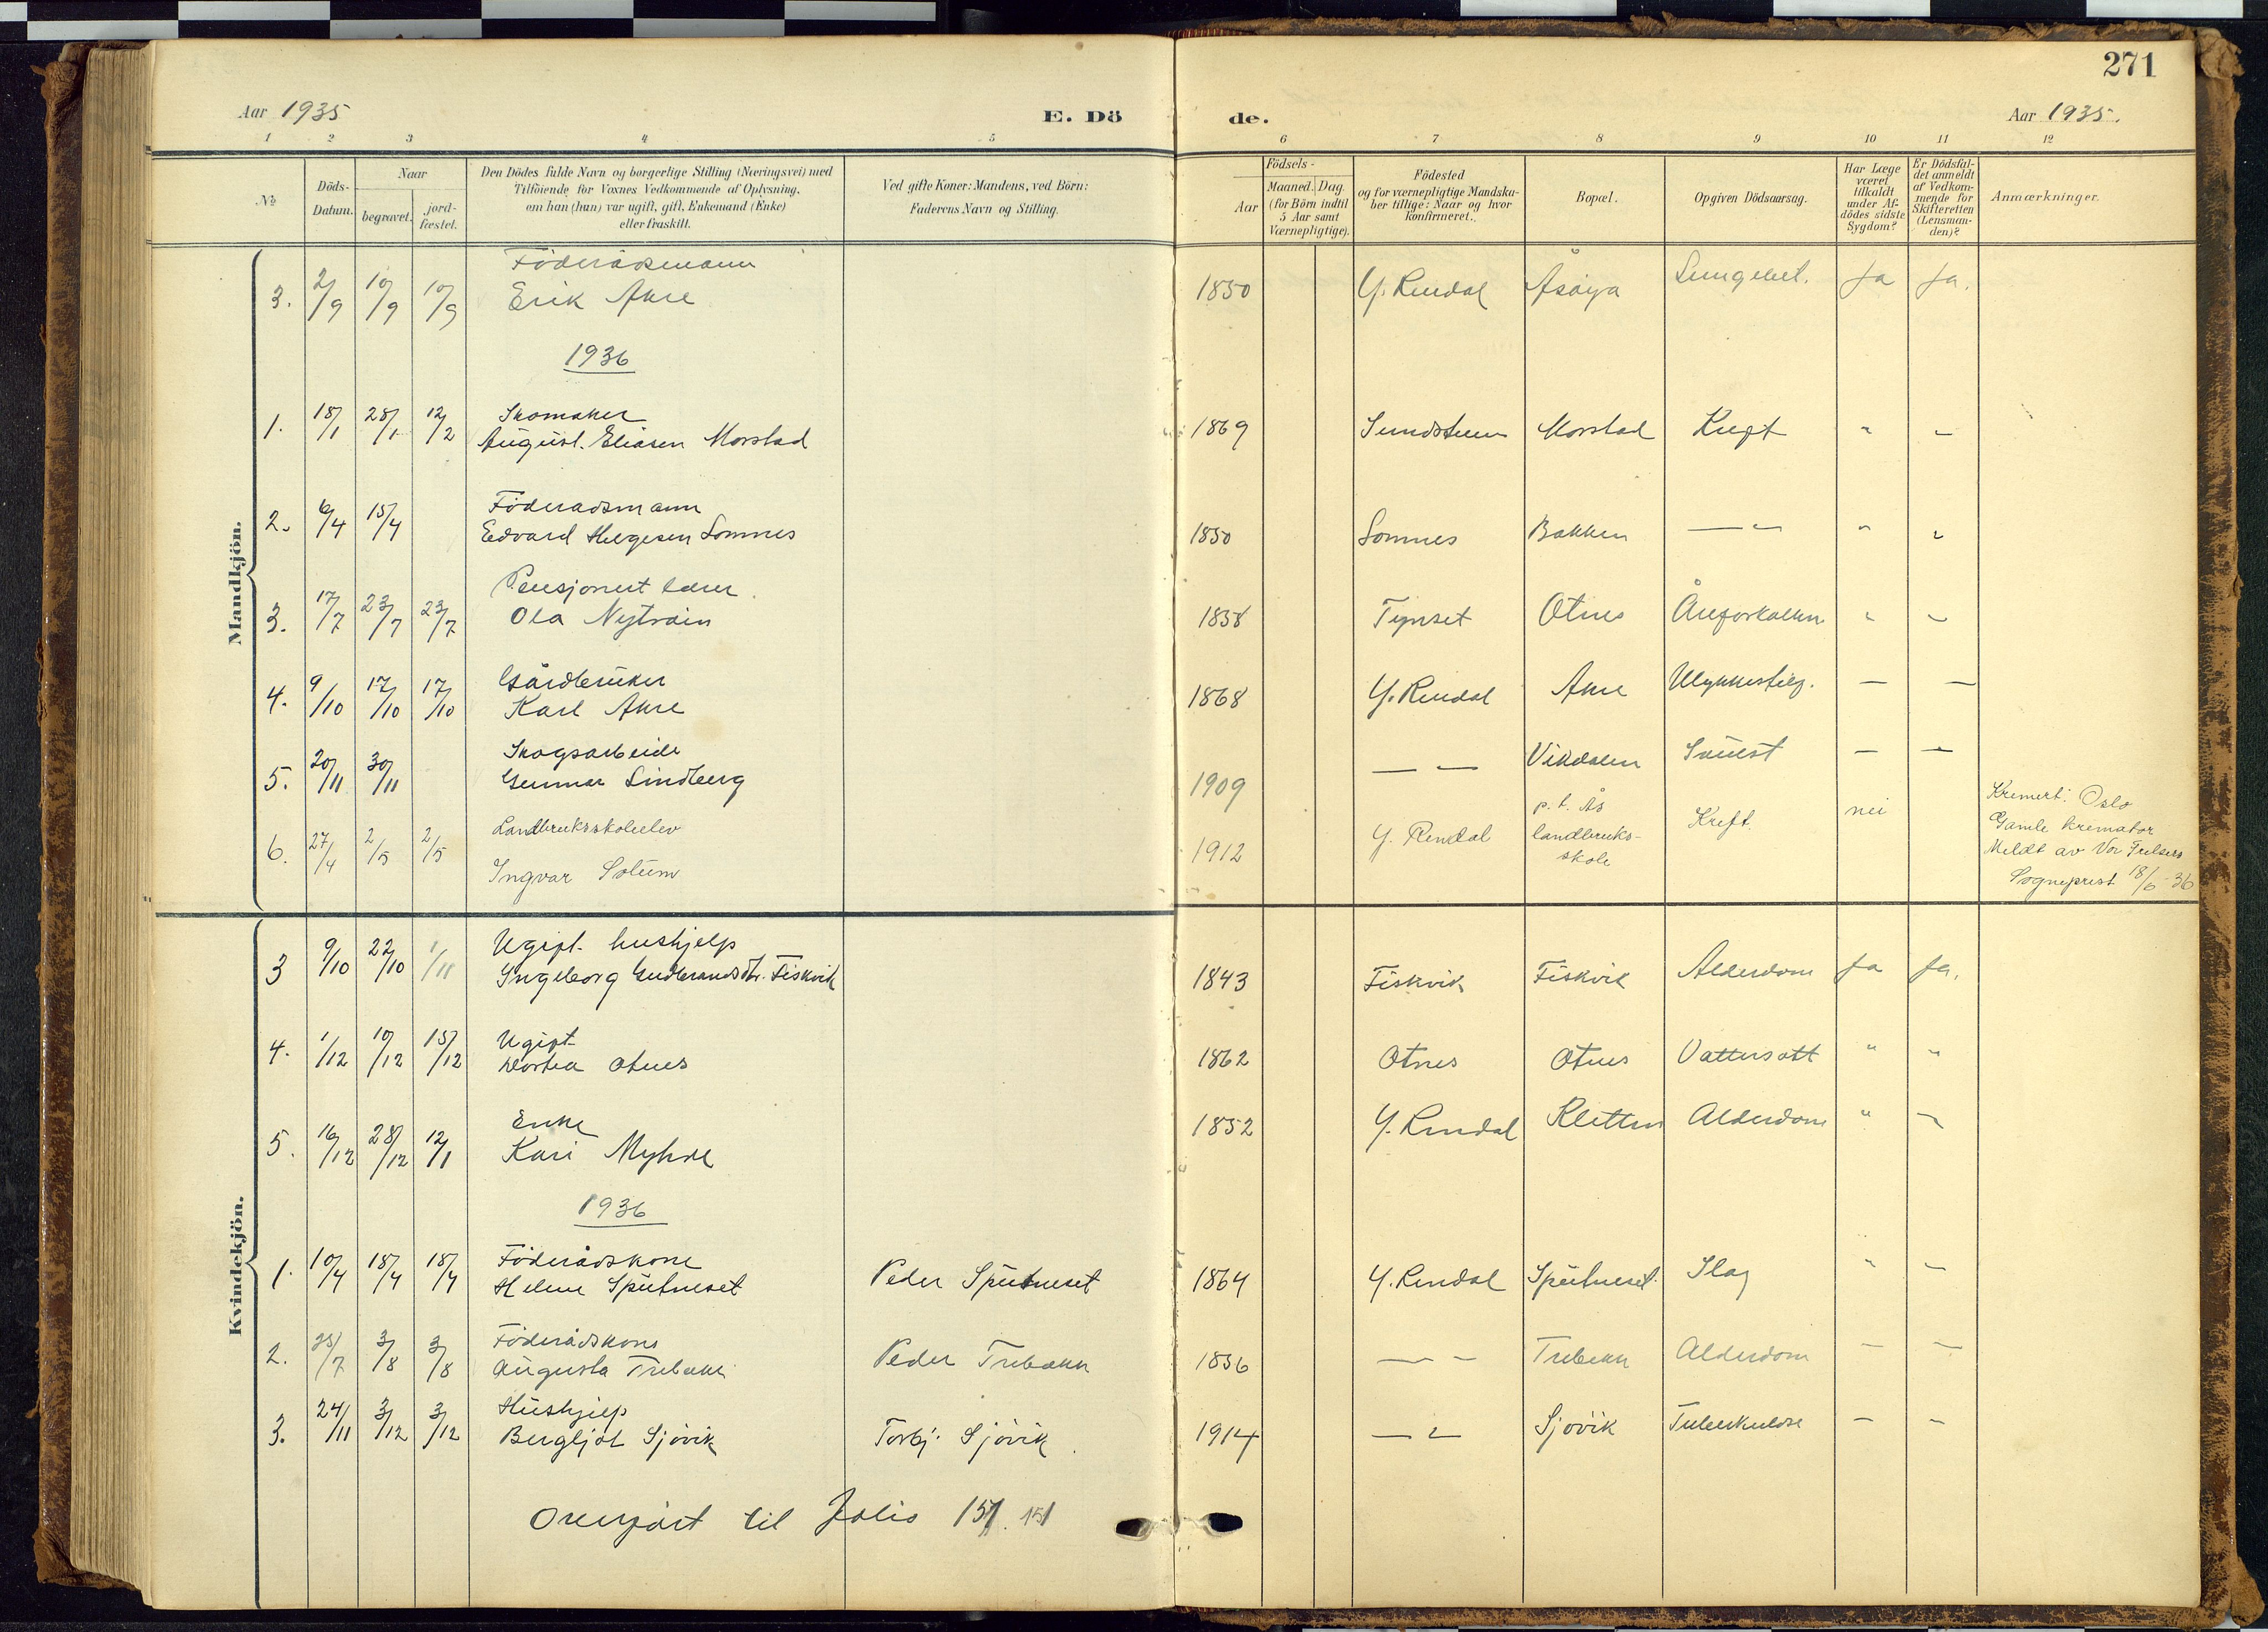 271
Aar 1935
E. Dö
de.
Aar 1935.
1 2 3 4 5 6 7 8 9 10 11 12
№
Döds-
Datum.
Naar
begravet.
jord-
fæstet.
Den Dödes fulde Navn og borgerlige Stilling (Næringsvei) med
Tilföiende for Voxnes Vedkommende af Oplysning,
om han (hun) var ugift, gift, Enkemand (Enke)
eller fraskilt.
Ved gifte Koner: Mandens, ved Börn:
Faderens Navn og Stilling.
Födsels-
Aar
Maaned. Dag.
(for Börn indtil
5 Aar samt
Værnepligtige).
Födested
og for værnepligtige Mandska-
ber tillige: Naar og hvor
konfirmeret.
Bopæl.
Opgiven Dödsaarsag.
Har Læge
været
tilkaldt
under Af-
dödes sidste
Sygdom?
Er Dödsfal-
det anmeldt
af Vedkom-
mende for
Skifteretten
(Lensman-
den)?
Anmærkninger.
Mandkjön.
Föderådsmann
3. 2/9 10/9 10/9 Erik Akre 1850 Y. Rendal Åsøya Ja Ja.
1936
Skomaker
1. 18/1 28/1 12/2 August Eliasen Morstad 1869 Morstad Kreft " "
Föderadsmann
2. 6/4 15/4 Edvard Helgesen Lomnes 1850 Lomnes Bakken — " " "
Pensjonert lærer
3. 17/7 23/7 23/7 Ola Nytrøin 1858 Tynset Otnes Åreforkalkn " "
Gårdbruker
4. 9/10 17/10 17/10 Karl Akre 1868 Y. Rendal Akre Ulykkestilf. — —
Skogsarbeide
5. 20/11 30/11 Gunnar Lindberg 1909 — — Vikdalen — —
Landbruksskoleelev
6. 27/4 2/5 2/5 Ingvar Solum 1912 Y. Rendal p. t. Ås
landbruks-
skole
Kreft. nei
Kremert. Oslo
Gamle kremator
Meldt av Vor Frelsers
Sogneprest 18/6-36
Kvindekjön.
Ugift. hushjelp
3 9/10 22/10 1/11 Ingeborg Gudbrandsdtr. Fiskvik 1843 Fiskvik Fiskvik Alderdom Ja Ja.
Ugift
4. 1/12 10/12 15/12 Dortea Otnes 1862 Otnes Otnes Vattersott " "
Enke
5. 16/12 28/12 12/1 Kari Myhre 1852 Y. Rendal Kletten Alderdom " "
1936
Föderådskone
1. 10/4 18/4 18/4 Helene Sputneset Peder Sputneset 1864 Y. Rendal Sputneset Slag " "
Föderådskone
2. 25/7 3/8 3/8 Augusta Trebækk Peder Trebækk 1856 — — Trebekk Alderdom — —
Hushjelp
3. 24/11 3/12 3/12 Bergljot Sjövik Torbj. Sjövik 1914 — " Sjövik Tuberkulose — —
Overfört til Folio 151. 151